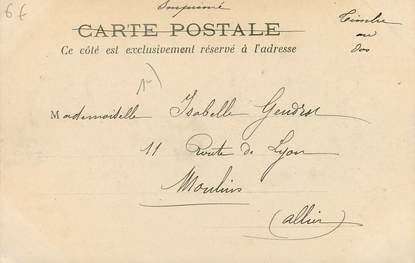 6€
Imprimé
CARTE POSTALE
Timbre
au
dos
Ce côté est exclusivement réservé à l'adresse
Mademoiselle Isabelle Gendrot
11 Route de Lyon
Moulins
(Allier)